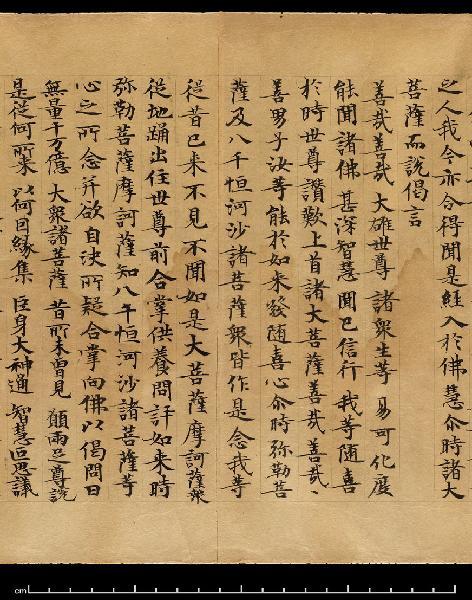 之人我今亦令得聞是經入於佛慧尒時諸大
菩薩而說偈言
善哉善哉 大雄世尊 諸衆生等 易可化度
能聞諸佛 甚深智慧 聞已信行 我等随喜
於時世尊讚歎上首諸大菩薩善哉善哉、
善男子汝等能於如来發随喜心尒時弥勒菩
薩及八千恒河沙諸菩薩衆皆作是念我等
從昔已来不見不聞如是大菩薩摩訶薩衆
從地踊出住世尊前合掌供養問訊如来時
弥勒菩薩摩訶薩知八千恒河沙諸菩薩等
心之所念并欲自決所疑合掌向佛以偈問曰
無量千万億 大衆諸菩薩 昔所未曾見 願兩足尊說
是從何所来 以何因緣集 巨身大神通 智慧叵思議
cm